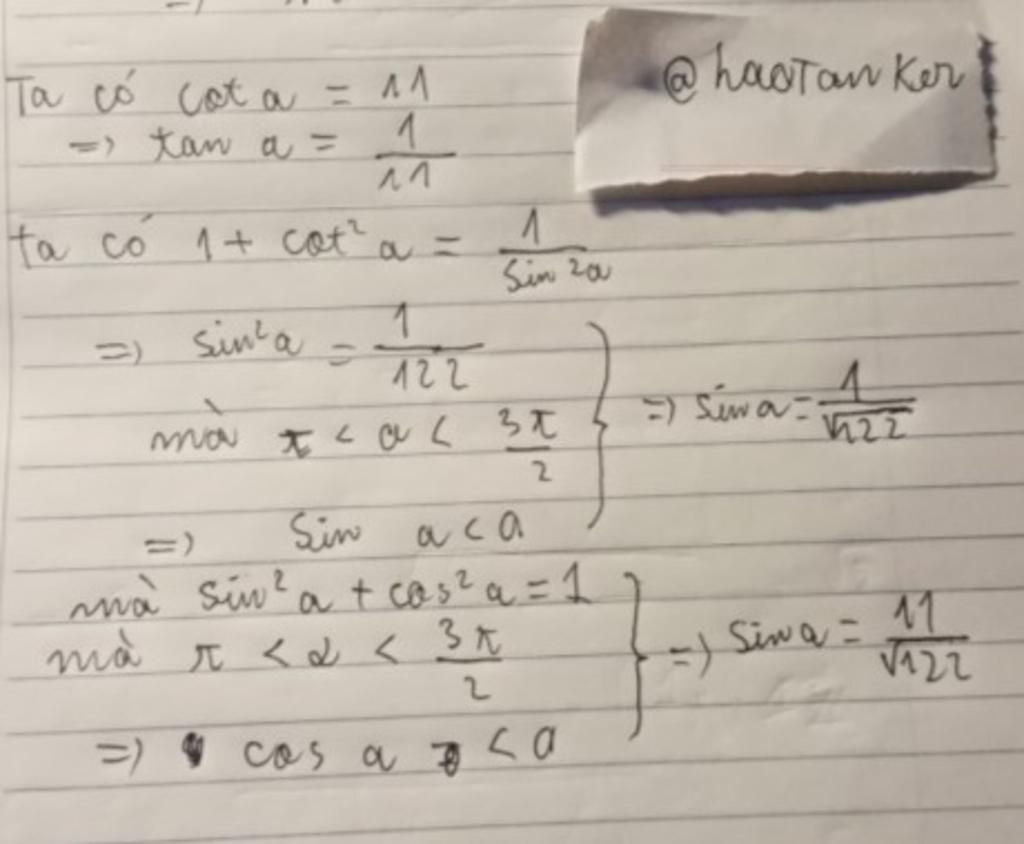 @haoTanKer
Ta có cot a = 11
=> tan a = 1/11
ta có 1 + cot² a = 1/sin ²a
=> sin²a = 1/122
mà π < a < 3π/2
=> Sin a < a
} => sin a = 1/√122
mà sin² a + cos² a = 1
mà π < α < 3π/2
=> cos a < a
} => sin a = 11/√122